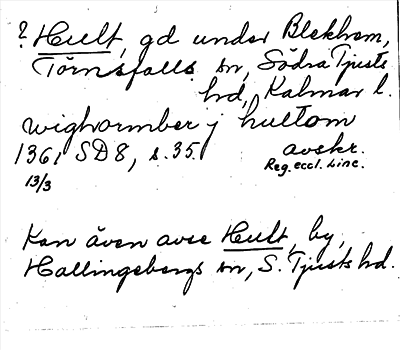 ? Hult, gd under Blekhem,
Törnsfalls sn, Södra Tjusts
hd, Kalmar l.
wighormber j hultom
1361 SD 8, s. 35. avskr.
13/3 Reg. eccl. Linc.
Kan även avse Hult, by,
Hallingebergs sn, S. Tjusts hd.